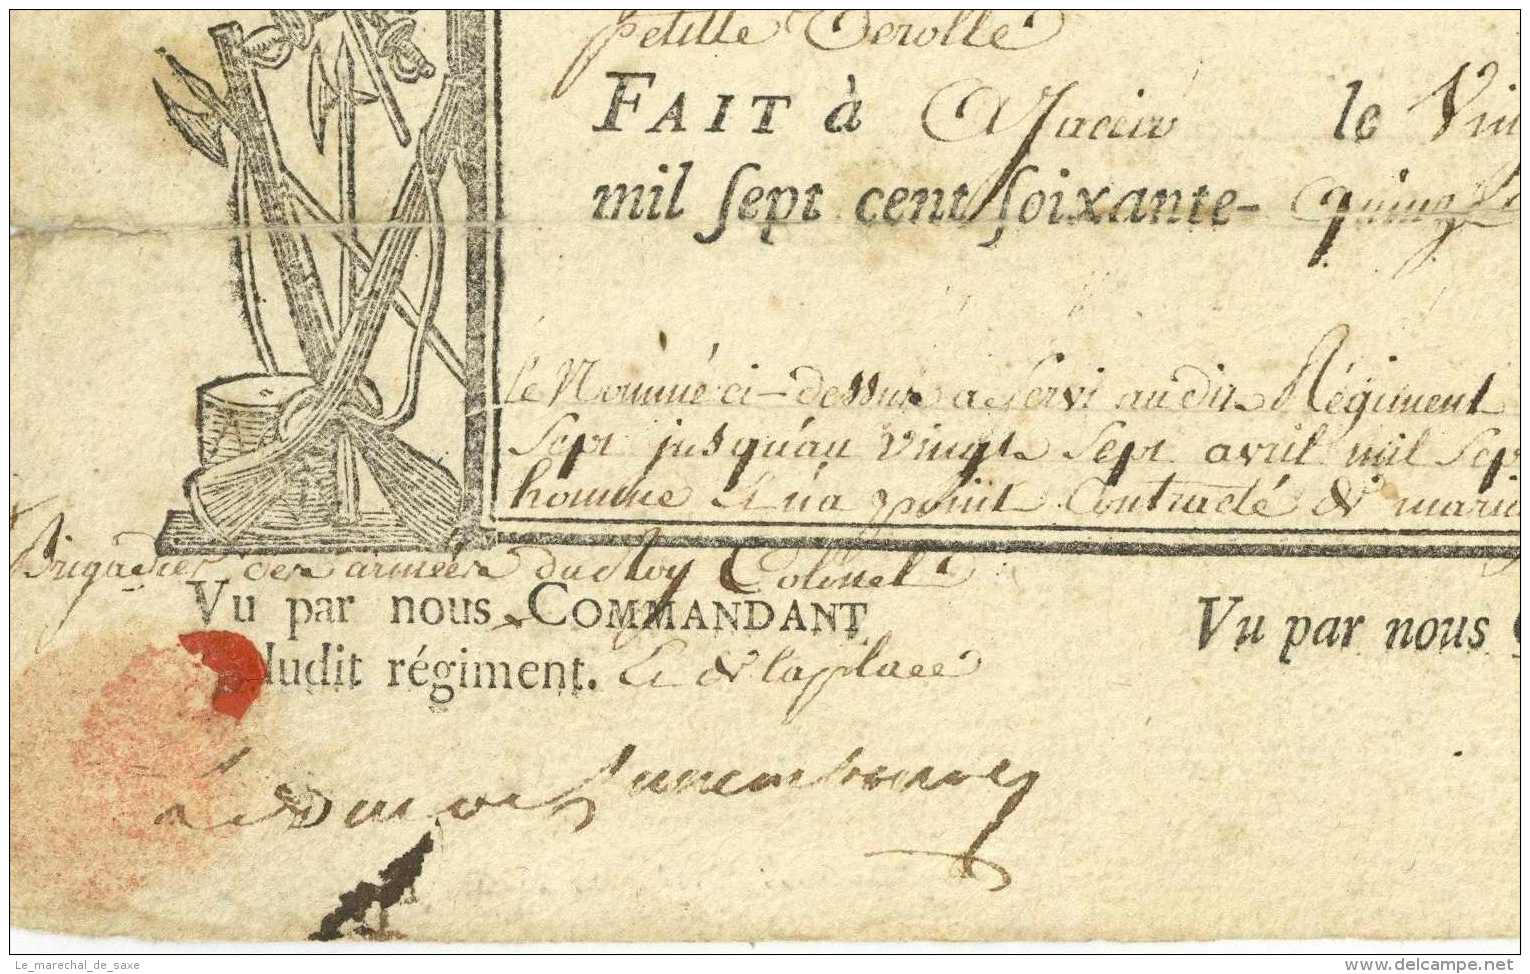 petitte Verolle
FAIT à Ajaccio le Vin
mil ſept cent ſoixante- quinze
le Nommé ci-dessus a Servi audit Régiment
Sept jusqu'au vingt Sept avril mil Sep
homme & n'a point Contracté de mari
Brigadier des armées du Roy Colonel
Vu par nous COMMANDANT
dudit régiment. & de la place
Vu par nous
Le Duc de Luxembourg
Le_marechal_de_saxe
www.delcampe.net